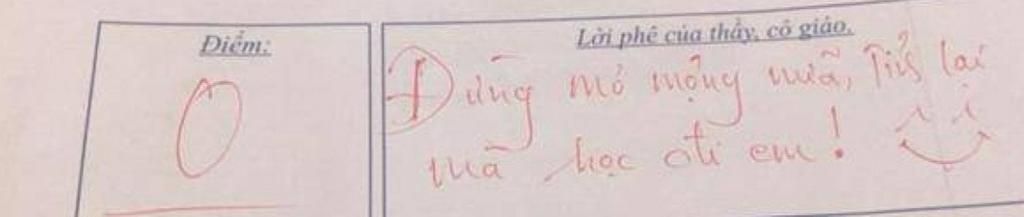 Điểm:
0
Lời phê của thầy, cô giáo.
Đừng mơ mộng nữa, Tỉnh lại
mà học đi em!